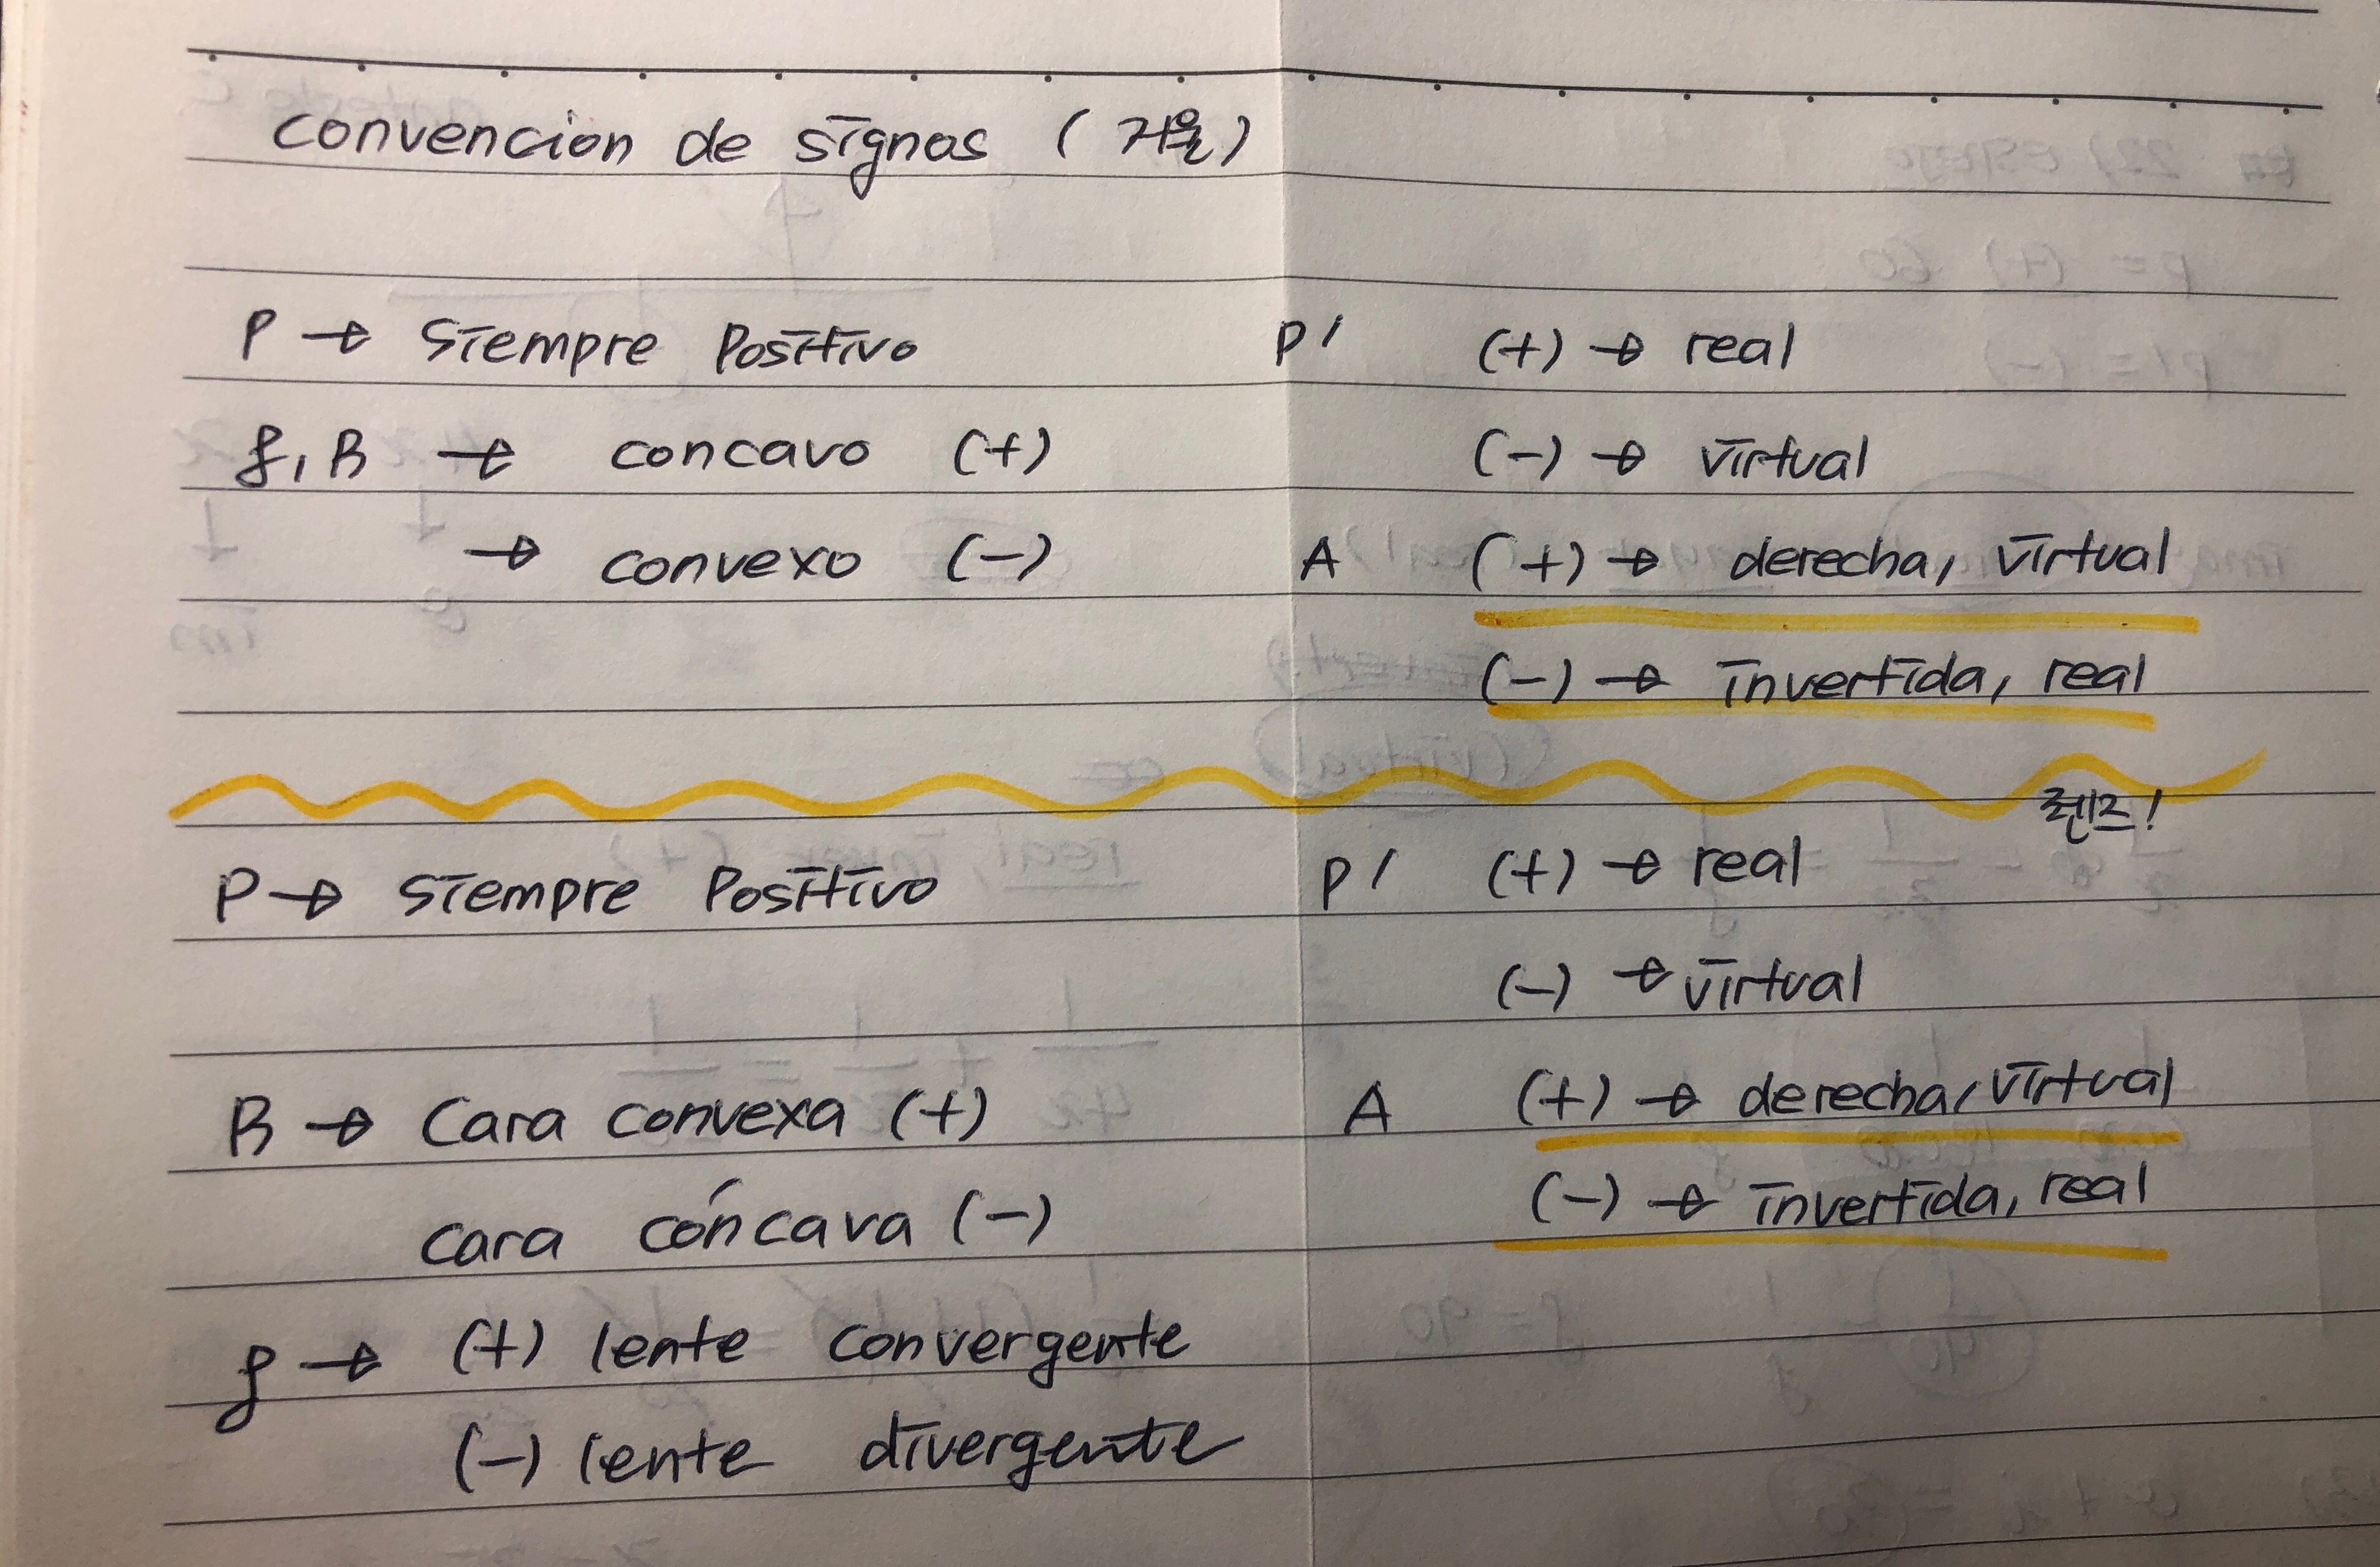 convencion de signos (거울)
P → siempre positivo
P' (+) → real
f, R → concavo (+)
(-) → virtual
→ convexo (-)
A (+) → derecha, virtual
(-) → invertida, real
렌즈!
P → siempre positivo
P' (+) → real
(-) → virtual
R → Cara convexa (+)
A (+) → derecha, virtual
cara cóncava (-)
(-) → invertida, real
f → (+) lente convergente
(-) lente divergente